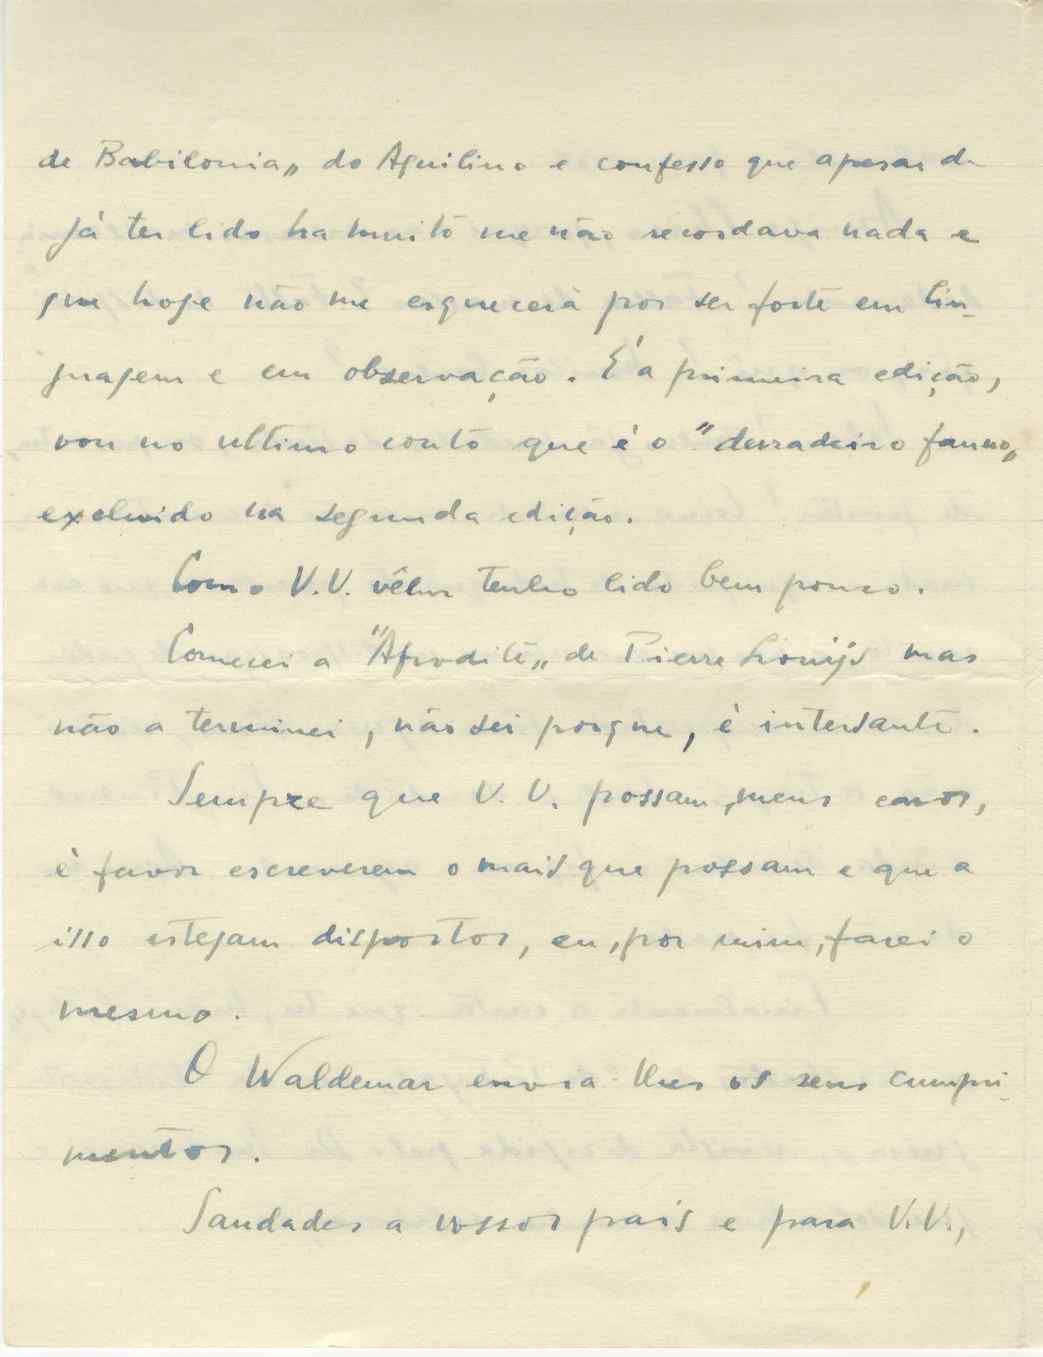 de Babilonia„ do Aquilino e confesso que apesar de
já ter lido ha muito me não recordava nada e
que hoje não me esquecerà por ser forte em lin-
guagem e em observação. É a primeira edição,
vou no ultimo conto que é o "derradeiro fauno„
excluido na segunda edição.
Como V.V. vêem tenho lido bem pouco.
Comecei a "Afrodite„ de Pierre Louÿs mas
não a terminei, não sei porque, è intersante.
Sempre que V. V. possam, meus caros,
è favor escreverem o mais que possam e que a
isso estejam dispostos, eu, por mim, farei o
mesmo.
O Waldemar envia-lhes os seus cumpri-
mentos.
Saudades a vossos pais e para V.V.,